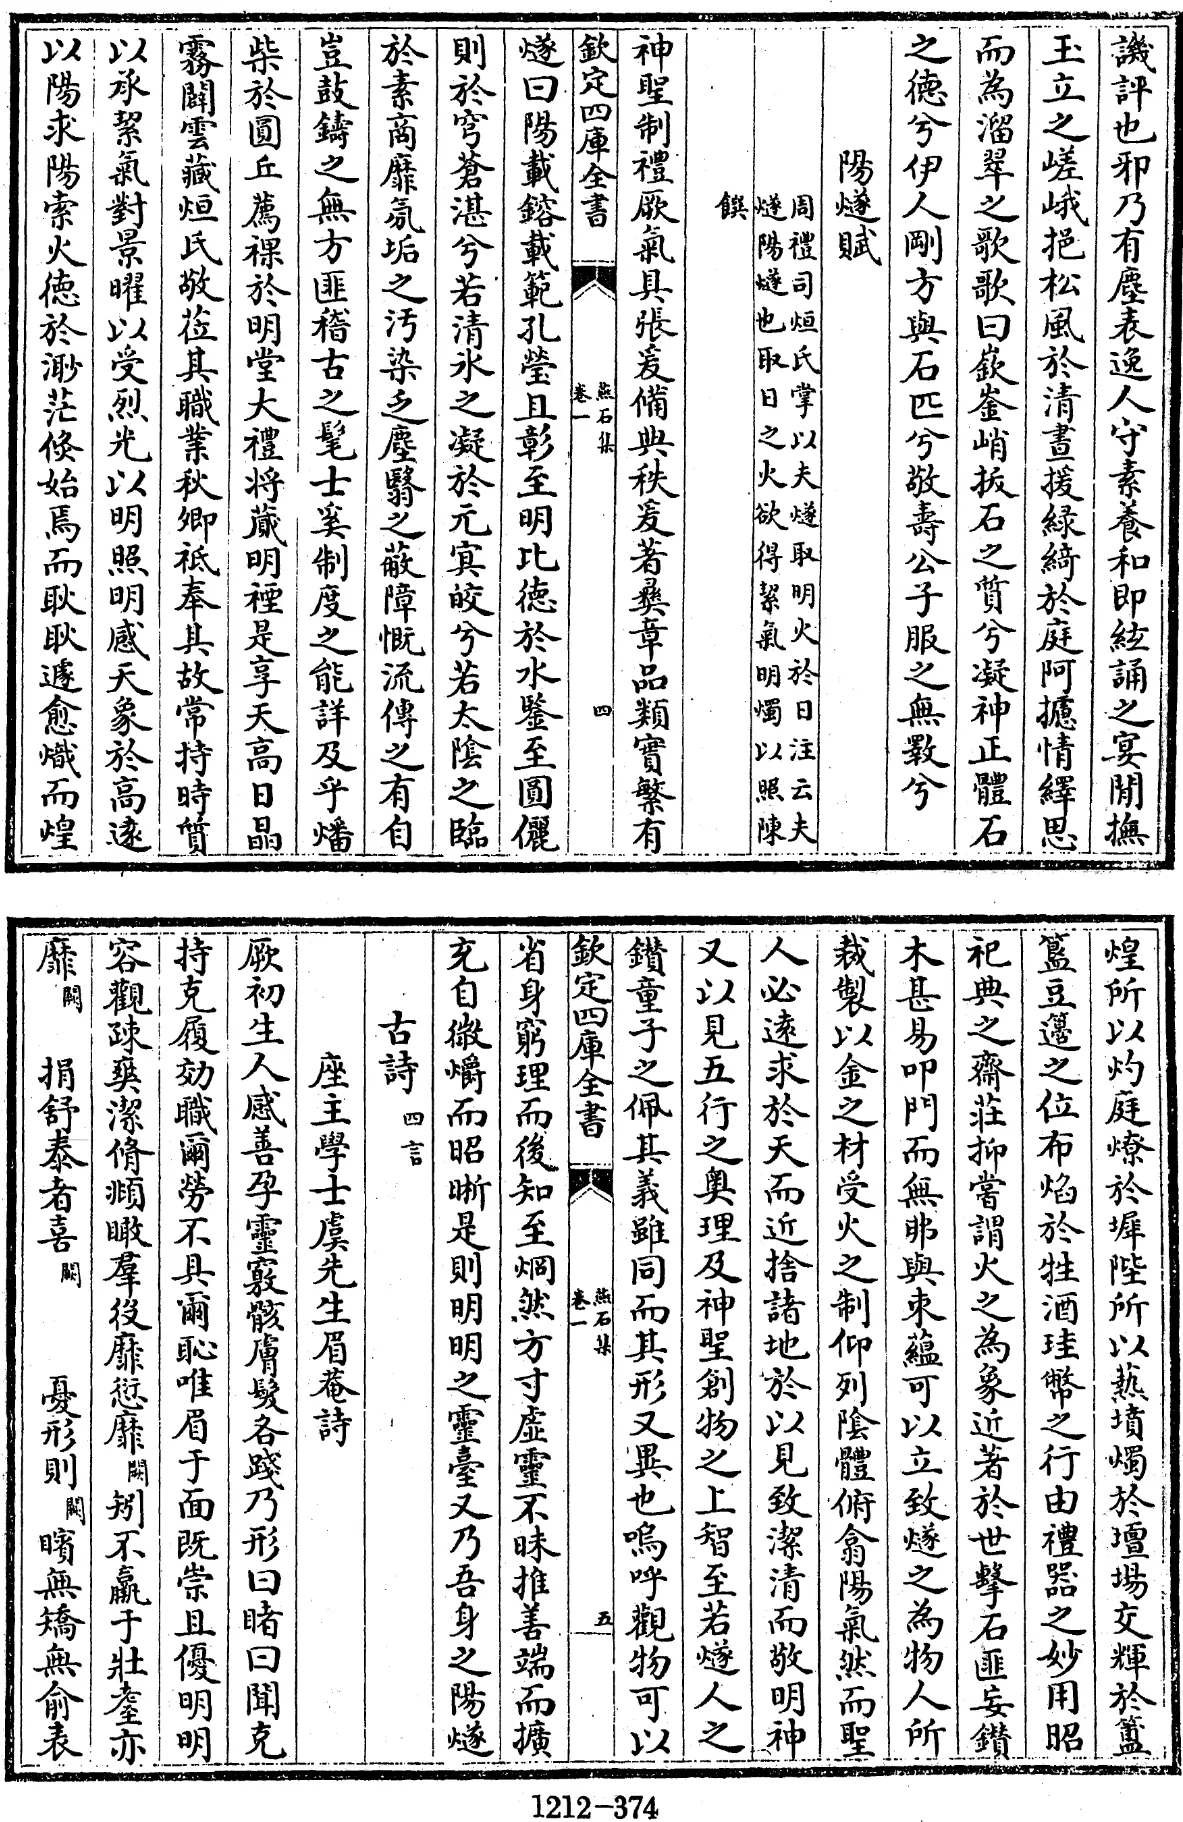 譏評也邪乃有塵表逸人守素養和即絃誦之宴閒撫
玉立之嵯峨挹松風於清晝援緑綺於庭阿攄情繹思
而為溜翠之歌歌曰嶔崟峭拔石之質兮凝神正體石
之德兮伊人剛方與石匹兮敬壽公子服之無斁兮
陽燧賦
周禮司烜氏掌以夫燧取明火於日注云夫
燧陽燧也取日之火欲得絜氣明燭以照陳
饌
神聖制禮厥氣具張爰備典秩爰著彞章品類實繁有
欽定四庫全書
燕石集
卷一
四
燧曰陽載鎔載範孔瑩且彰至明比德於水鑒至圓儷
則於穹蒼湛兮若清氷之凝於元冥皎兮若太陰之臨
於素商靡氛垢之汚染乏塵翳之蔽障慨流傳之有自
豈鼓鑄之無方匪稽古之髦士奚制度之能詳及乎燔
柴於圓丘薦祼於明堂大禮将蕆明禋是享天高日晶
霧闢雲藏烜氏敬莅其職業秋卿祗奉其故常持時質
以承絜氣對景曜以受烈光以明照明感天象於高遠
以陽求陽索火德於渺茫倏始焉而耿耿遽愈熾而煌
煌所以灼庭燎於墀陛所以爇墳燭於壇場交輝於簠
簋豆籩之位布焰於牲酒珪幣之行由禮器之妙用昭
祀典之齋莊抑嘗謂火之為象近著於世擊石匪妄鑚
木甚易叩門而無弗與束蘊可以立致燧之為物人所
裁製以金之材受火之制仰列陰體俯翕陽氣然而聖
人必遠求於天而近捨諸地於以見致潔清而敬明神
又以見五行之奧理及神聖創物之上智至若燧人之
鑚童子之佩其義雖同而其形又異也嗚呼觀物可以
欽定四庫全書
燕石集
卷一
五
省身窮理而後知至烱然方寸虚靈不昧推善端而擴
充自微爝而昭晣是則明明之靈臺又乃吾身之陽燧
古詩四言
座主學士虞先生眉菴詩
厥初生人感善孕靈竅骸膚髮各踐乃形曰睹曰聞克
持克履効職爾勞不具爾恥唯眉于面既崇且優明明
容觀疎爽潔脩頫瞰羣役靡愆靡闕矧不贏于壯耋亦
靡闕　捐舒泰者喜闕　憂形則闕矉無矯無俞表
1212-374